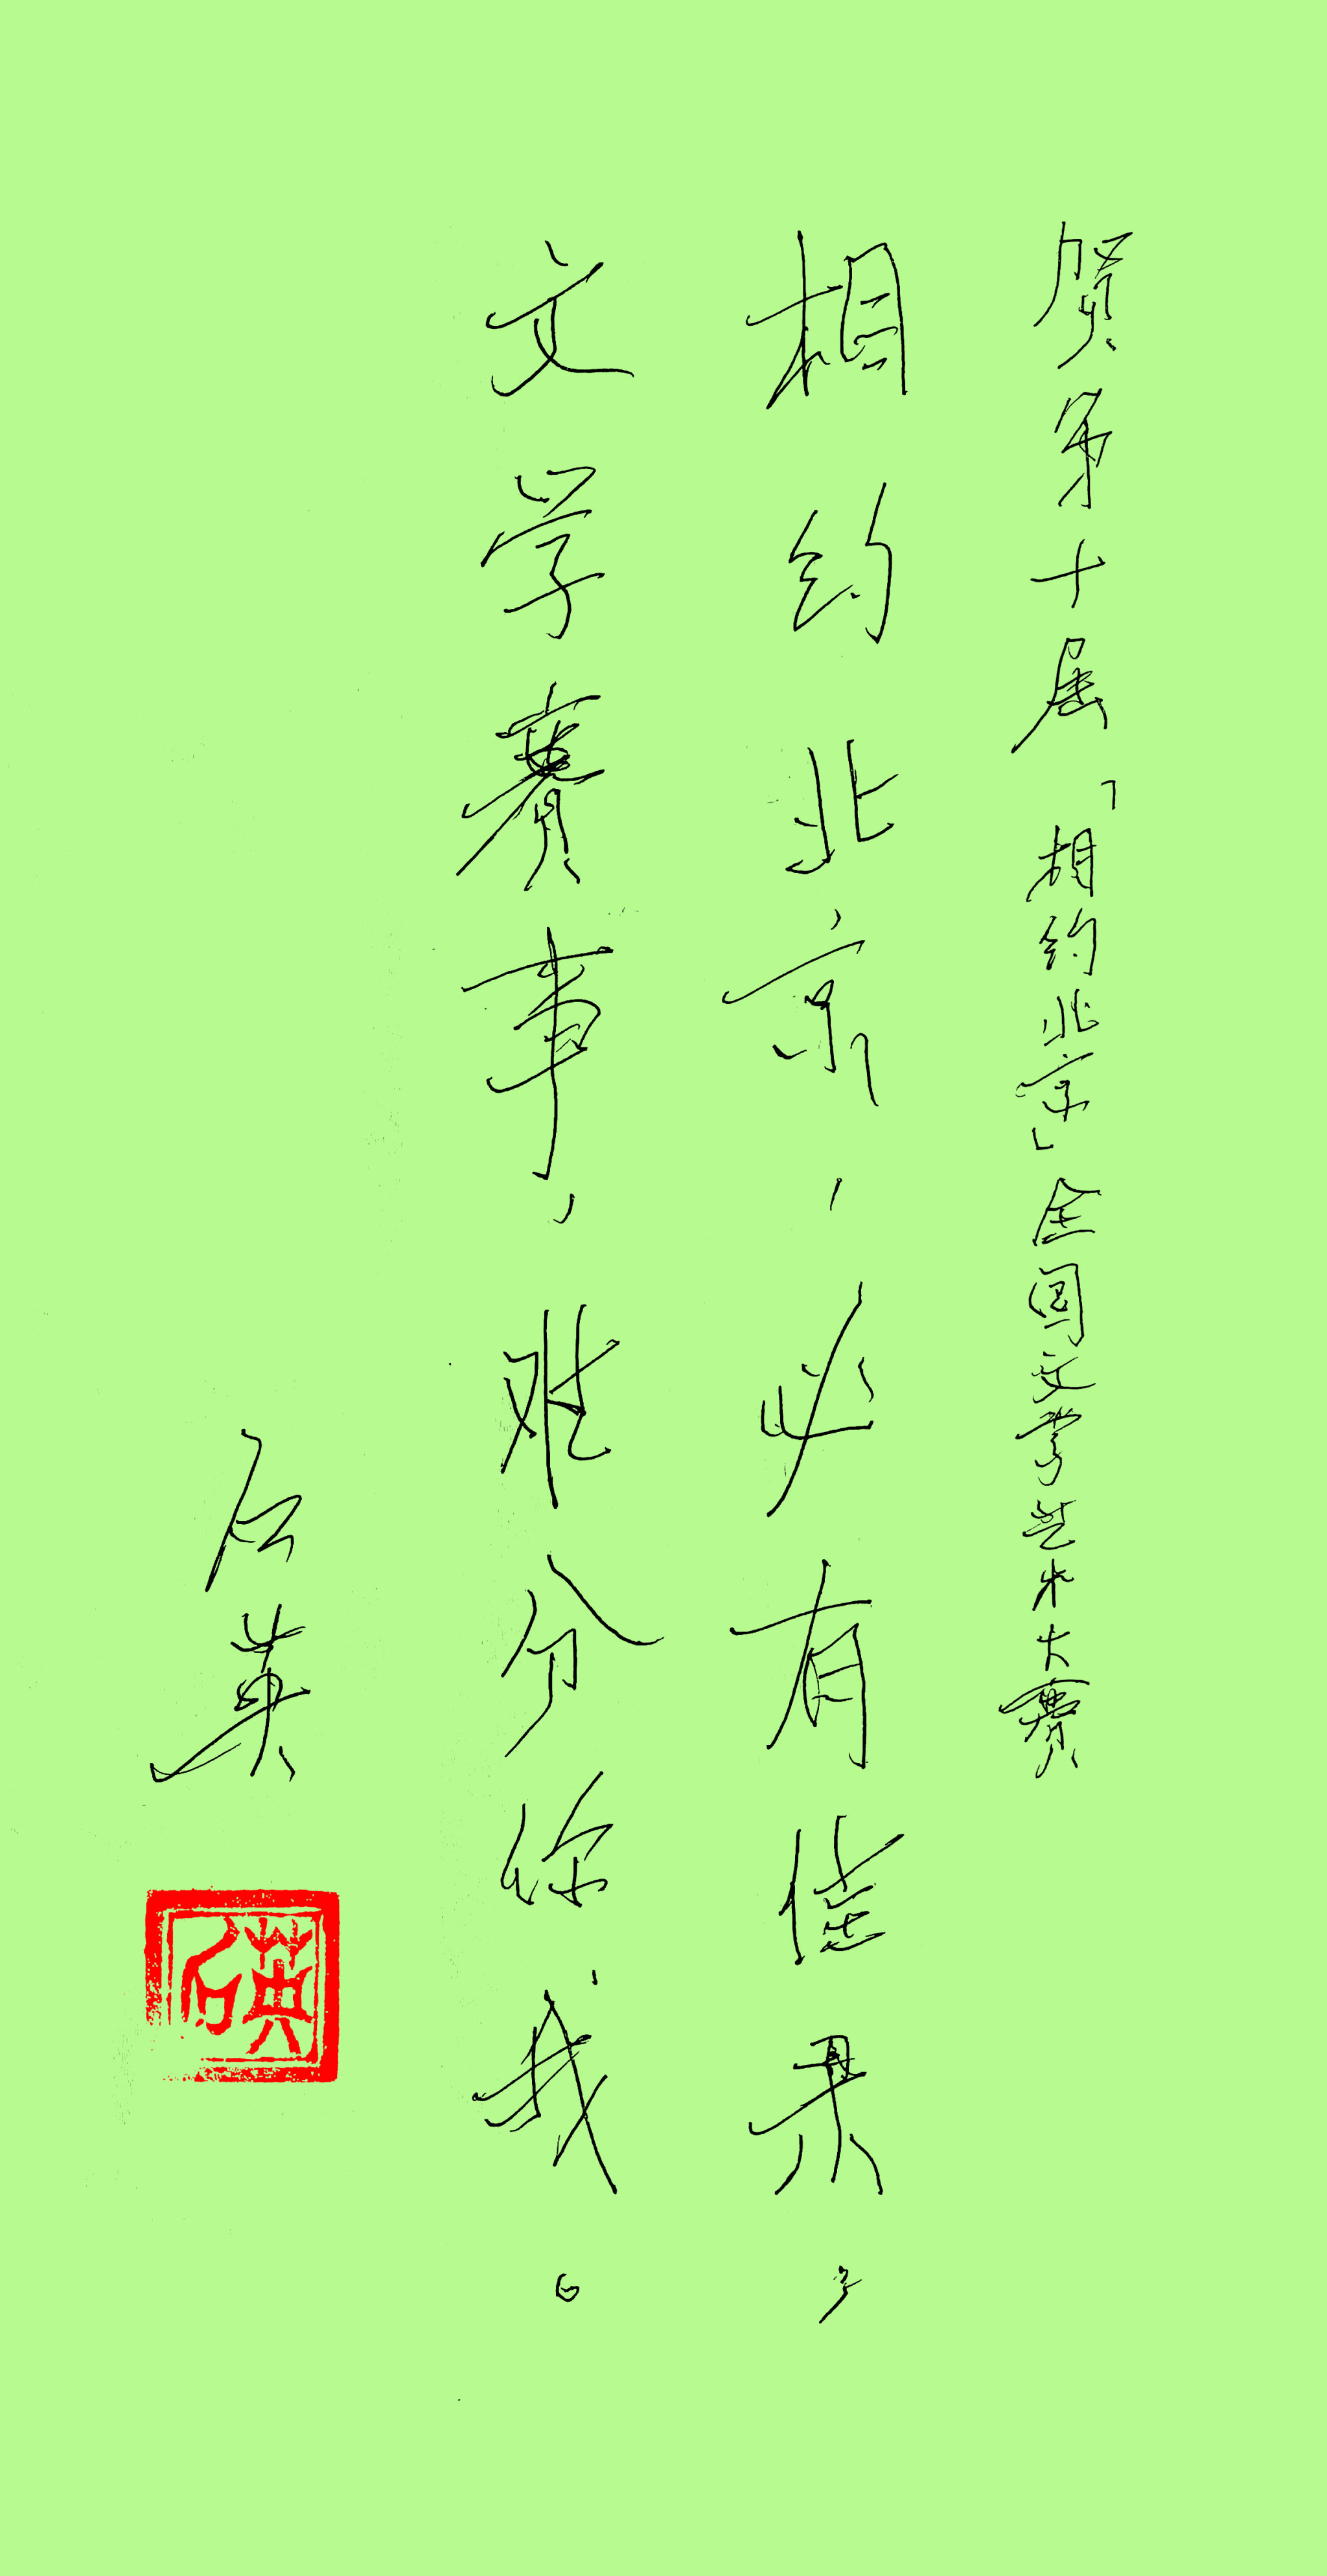 贺第十届「相约北京」全国文学艺术大赛
相约北京，必有佳果；
文学赛事，难分你我。
石英
石英